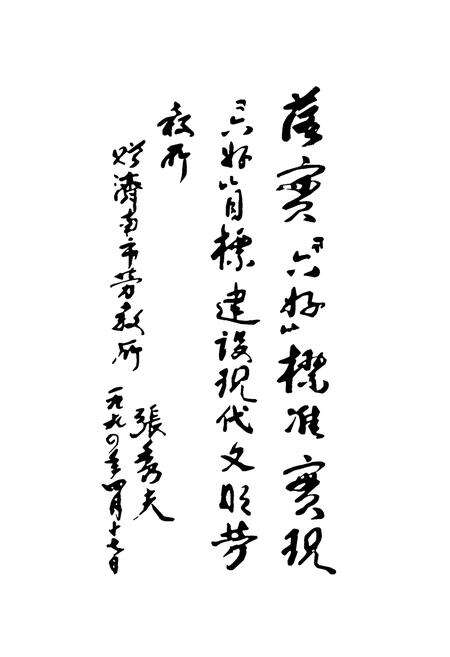 落實“六好”標准實现
“六好”目標建设现代文明劳
教所
赠濟南市劳教所
張秀夫
一九九〇年四月十七日